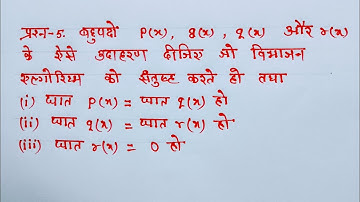 प्रश्न-5. बहुपदों P(x), g(x), q(x) और r(x)
के ऐसे उदाहरण दीजिए जो विभाजन
एल्गोरिथ्म को संतुष्ट करते हो तथा
(i) घात P(x) = घात q(x) हो
(ii) घात q(x) = घात r(x) हो
(iii) घात r(x) = 0 हो